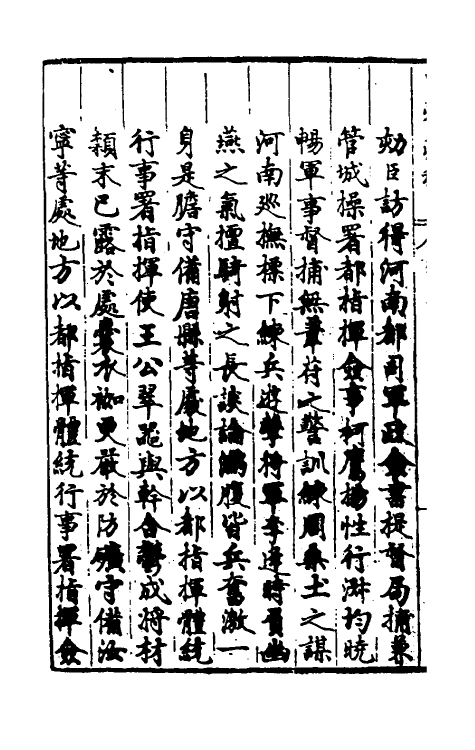 勑臣訪得河南都司軍政僉書提督局捕兼
管城操署都指揮僉事柯鷹揚性行淑均曉
暢軍事督捕無萑苻之警訓練周桑土之謀
河南廵撫標下練兵遊擊將軍李逢時貫幽
燕之氣擅騎射之長談論滿腹皆兵奮激一
身是膽守備唐縣等處地方以都指揮體統
行事署指揮使王公翠器與幹合藝成將材
頴末已露於處囊衣袽更嚴於防守備汝
寧等處地方以都指揮體統行事署指揮僉